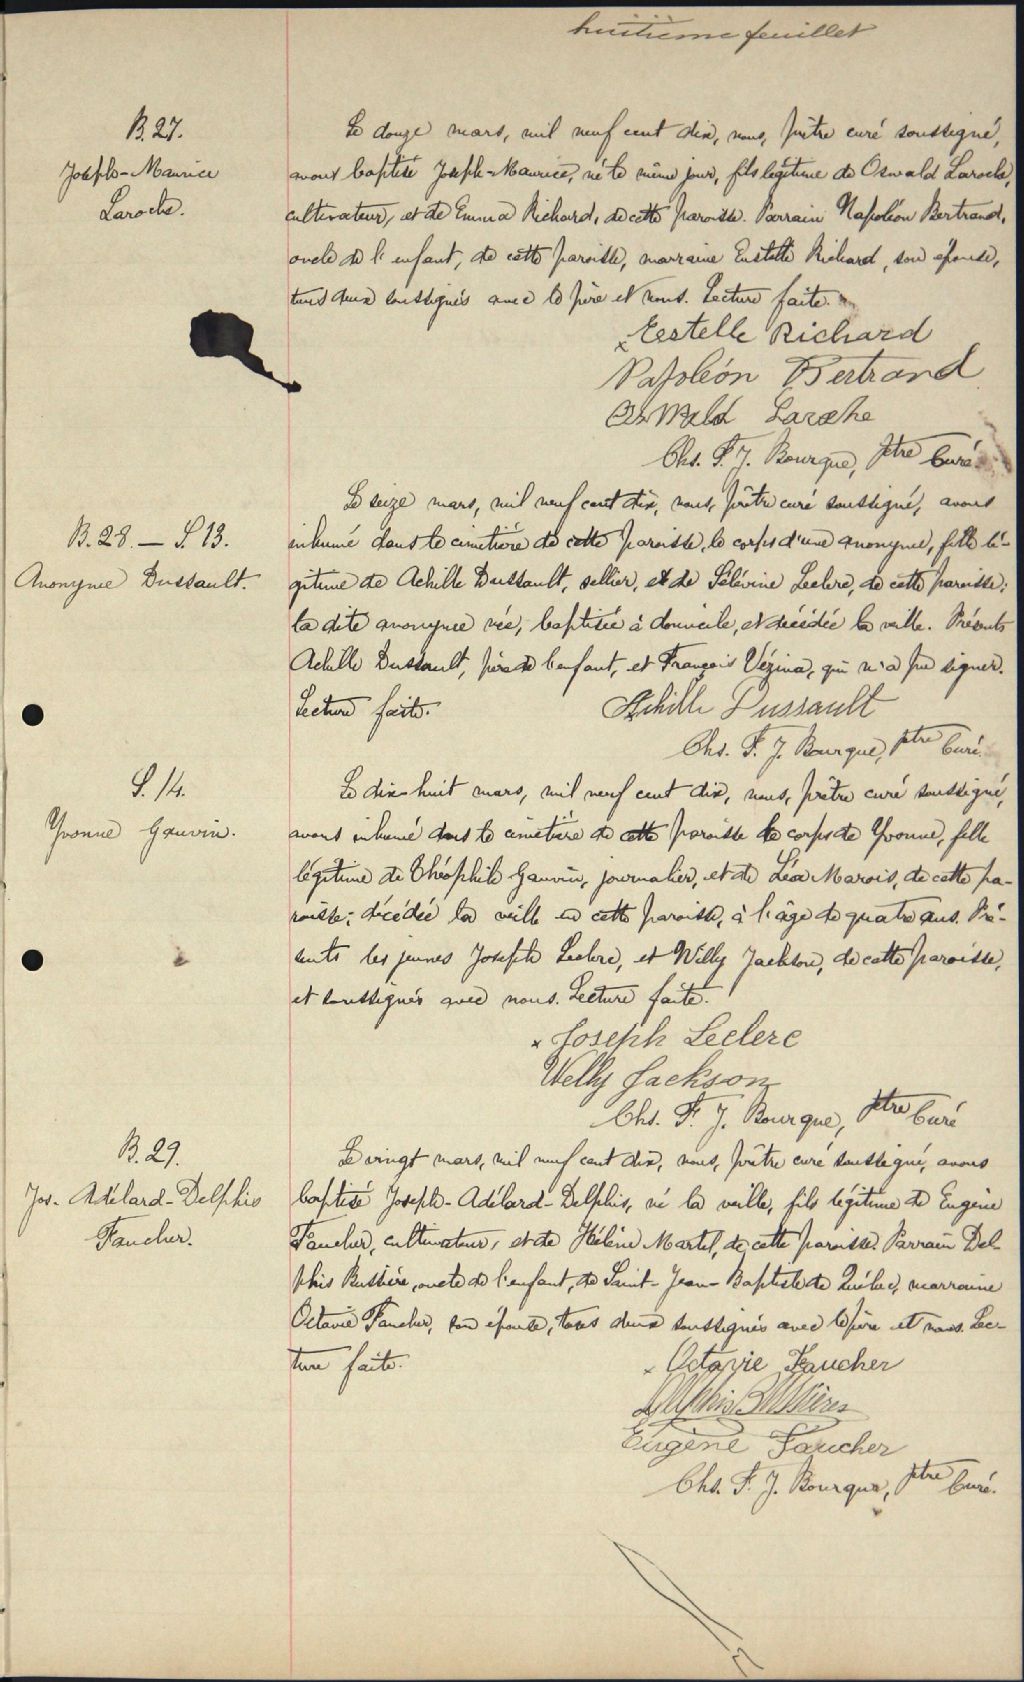 huitième feuillet
B.27.
Joseph-Maurice
Laroche.
Le douze mars, mil neuf cent dix, nous, prêtre curé soussigné,
avons baptisé Joseph-Maurice, né le même jour, fils légitime de Oswald Laroche,
cultivateur, et de Emma Richard, de cette paroisse. Parrain Napoléon Bertrand,
oncle de l'enfant, de cette paroisse, marraine Eustelle Richard, son épouse,
tous deux soussignés avec le père et nous. Lecture faite.
x Eestelle Richard
Napoléon Bertrand
Oswald Laroche
Chs. F. J. Bourque, ptre Curé.
B.28. — S.13.
Anonyme Dussault.
Le seize mars, mil neuf cent dix, nous, prêtre curé soussigné, avons
inhumé dans le cimetière de cette paroisse, le corps d'une anonyme, fille lé-
gitime de Achille Dussault, sellier, et de Célévine Leclerc, de cette paroisse;
la dite anonyme née, baptisée à domicile, et décédée la veille. Présents
Achille Dussault, père de l'enfant, et François Vézina, qui n'a pu signer.
Lecture faite.
Achille Dussault
Chs. F. J. Bourque, ptre Curé.
S.14.
Yvonne Gauvin.
Le dix-huit mars, mil neuf cent dix, nous, prêtre curé soussigné,
avons inhumé dans le cimetière de cette paroisse le corps de Yvonne, fille
légitime de Théophile Gauvin, journalier, et de Léa Marois, de cette pa-
roisse; décédée la veille en cette paroisse, à l'âge de quatre ans. Pré-
sents les jeunes Joseph Leclerc, et Willy Jackson, de cette paroisse,
et soussignés avec nous. Lecture faite.
x Joseph Leclerc
Welly Jackson
Chs. F. J. Bourque, ptre Curé
B.29.
Jos. Adélard-Delphis
Faucher.
Le vingt mars, mil neuf cent dix, nous, prêtre curé soussigné, avons
baptisé Joseph-Adélard-Delphis, né la veille, fils légitime de Eugène
Faucher, cultivateur, et de Hélène Martel, de cette paroisse. Parrain Del-
phis Bussière, oncle de l'enfant, de Saint-Jean-Baptiste de Québec, marraine
Octavie Faucher, son épouse, tous deux soussignés avec le père et nous. Lec-
ture faite.
x Octavie Faucher
Delphis Bussières
Eugène Faucher
Chs. F. J. Bourque, ptre Curé.